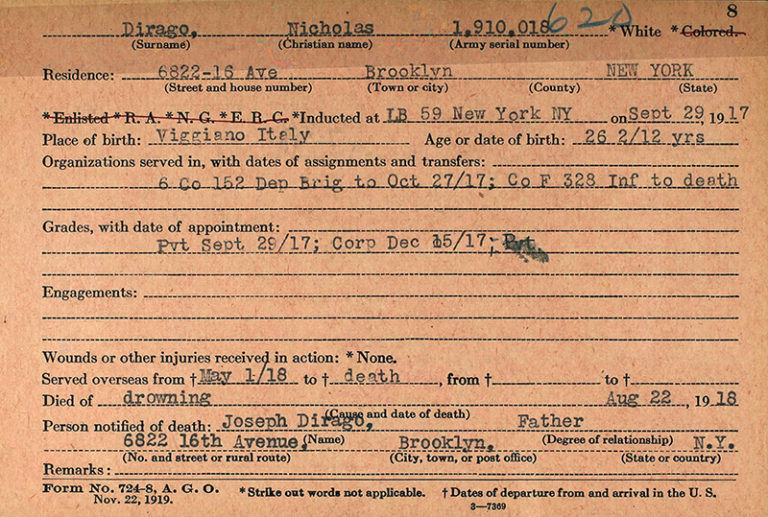 8
Dirago, Nicholas 1,910,018 620 *White *Colored.
(Surname) (Christian name) (Army serial number)
Residence: 6822-16 Ave Brooklyn NEW YORK
(Street and house number) (Town or city) (County) (State)
*Enlisted *R. A. *N. G. *E. R. C. *Inducted at LB 59 New York NY on Sept 29, 1917
Place of birth: Viggiano Italy Age or date of birth: 26 2/12 yrs
Organizations served in, with dates of assignments and transfers:
6 Co 152 Dep Brig to Oct 27/17; Co F 328 Inf to death
Grades, with date of appointment:
Pvt Sept 29/17; Corp Dec 15/17; Pvt
Engagements:
Wounds or other injuries received in action: *None.
Served overseas from †May 1/18 to † death, from † to †
Died of drowning Aug 22, 1918
(Cause and date of death)
Person notified of death: Joseph Dirago, Father
(Name) (Degree of relationship)
6822 16th Avenue, Brooklyn, N.Y.
(No. and street or rural route) (City, town, or post office) (State or country)
Remarks:
Form No. 724-8, A. G. O. *Strike out words not applicable. †Dates of departure from and arrival in the U. S.
Nov. 22, 1919. 3—7369